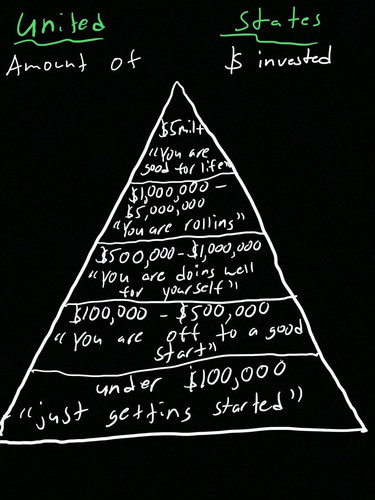 United States
Amount of $ invested
$5mil+
"You are
good for life"
$1,000,000 -
$5,000,000
"You are rolling"
$500,000 - $1,000,000
"You are doing well
for yourself"
$100,000 - $500,000
"You are off to a good
start"
under $100,000
"just getting started"